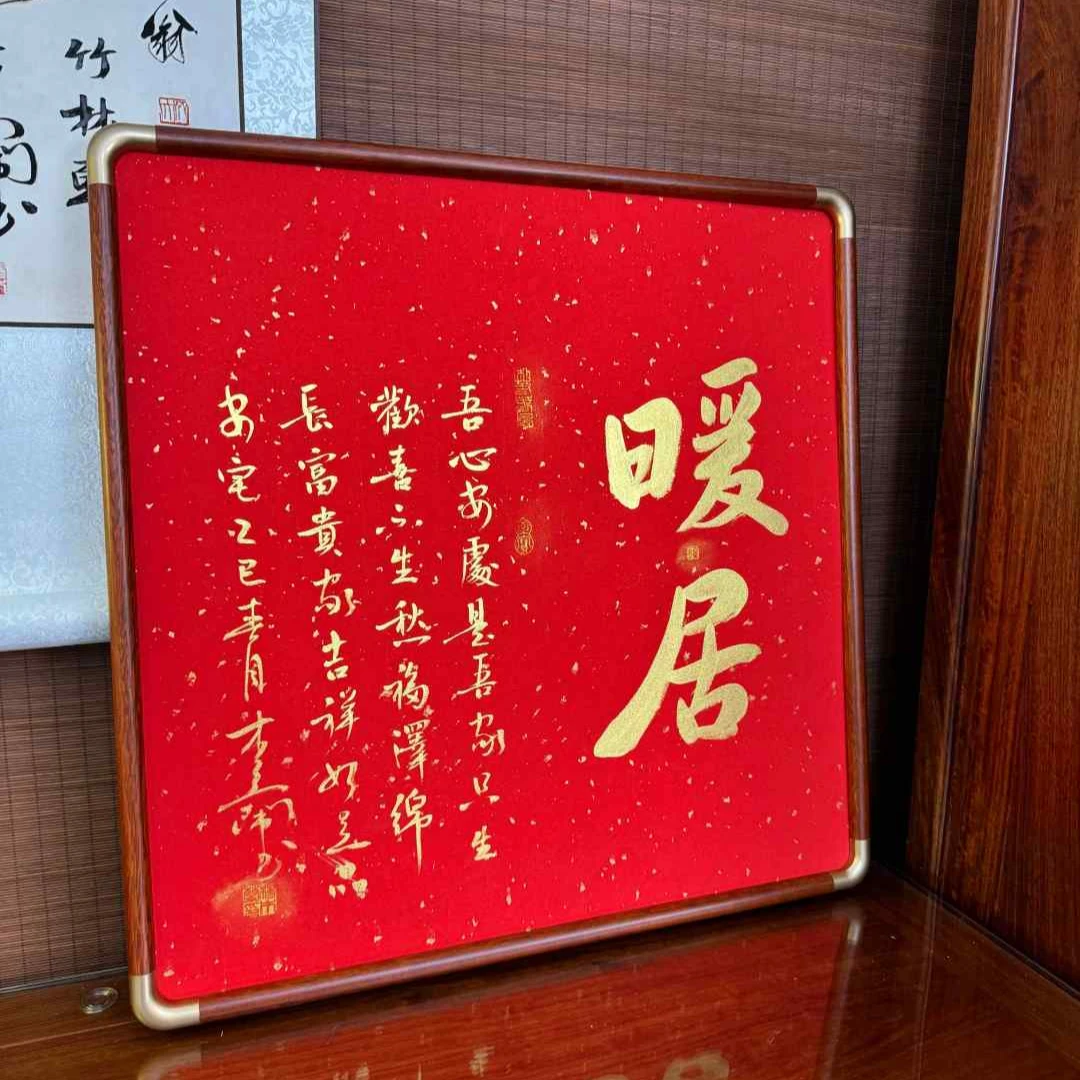 暖居
吾心安處是吾家只生
歡喜不生愁福澤綿
長富貴家吉祥好運照
安宅乙巳春月李
翁
竹林